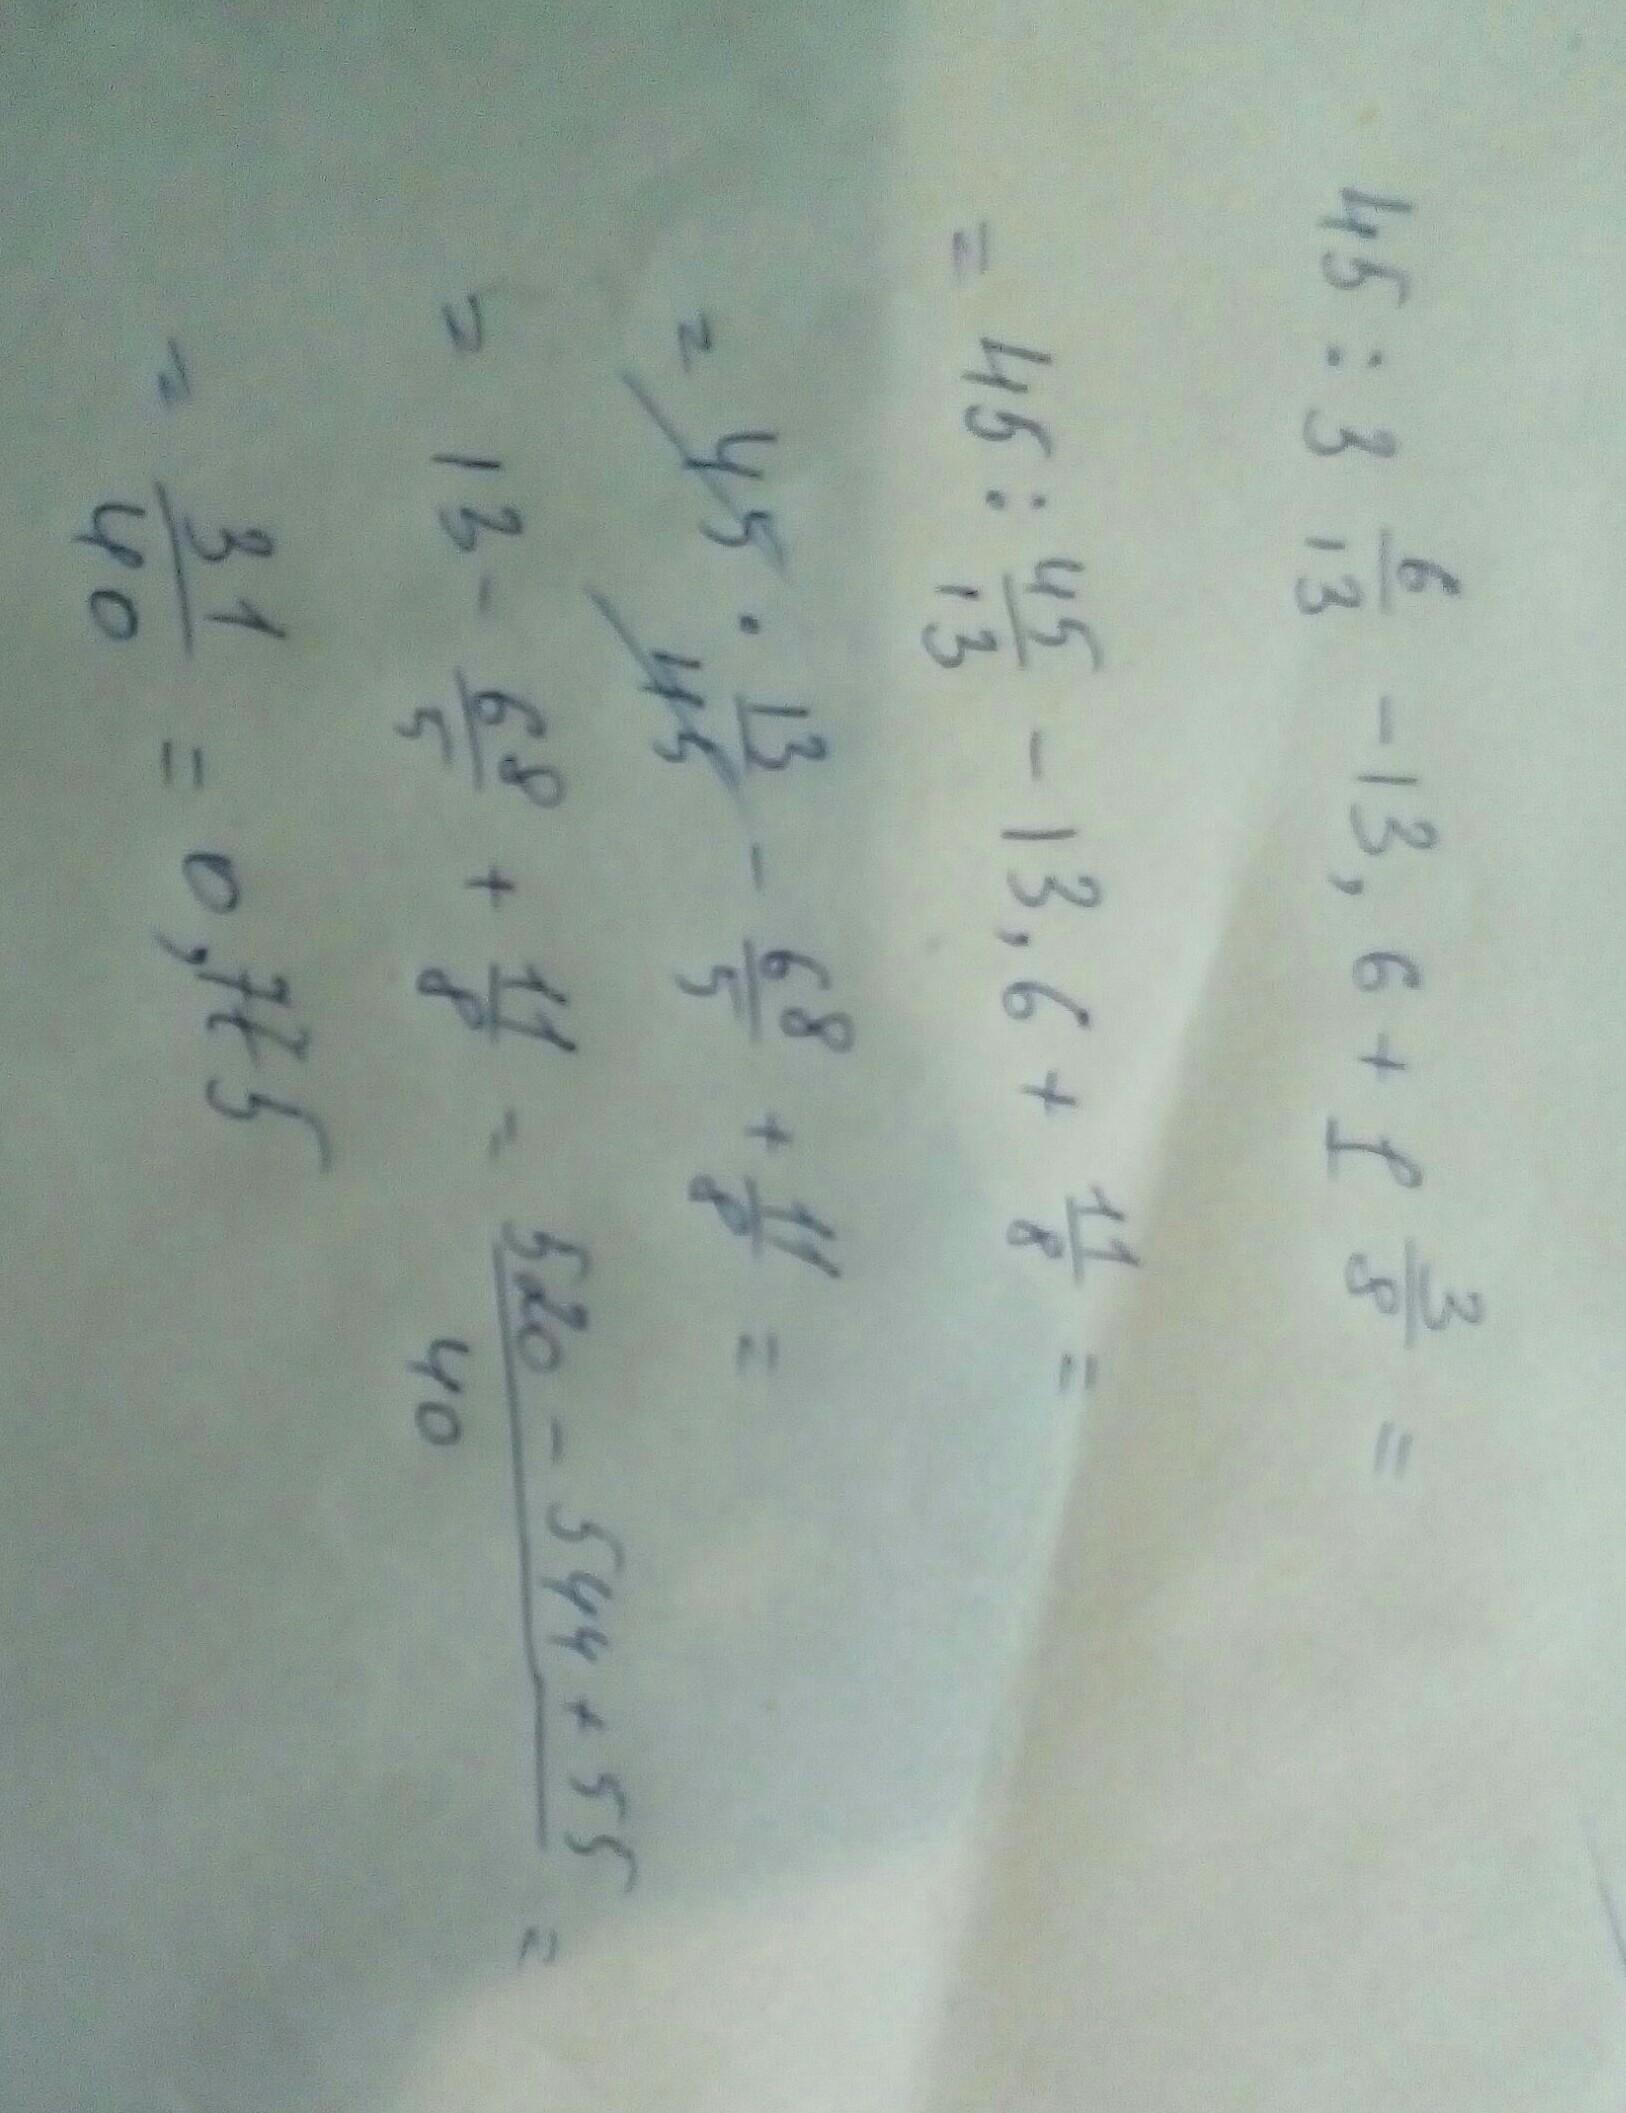 45 : 3 6/13 - 13,6 + 1 3/8 =
= 45 : 45/13 - 13,6 + 11/8 =
= 45 · 13/45 - 68/5 + 11/8 =
= 13 - 68/5 + 11/8 = 520 - 544 + 55/40 =
= 31/40 = 0,775